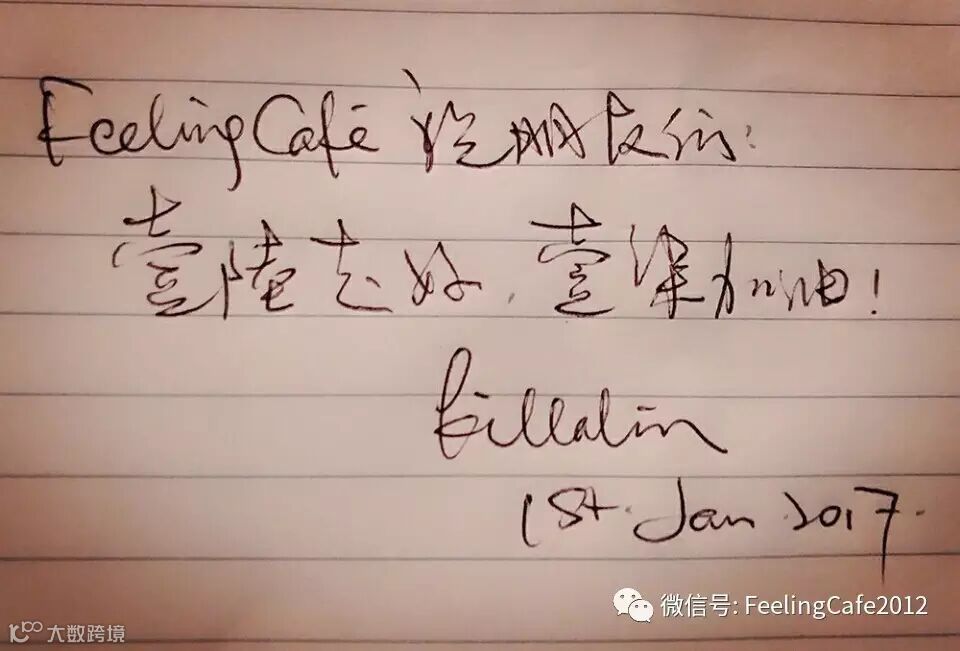 FeelingCafé 的朋友们:
壹陆走好,壹柒加油!
billalin
1st. Jan 2017.
微信号: FeelingCafe2012
大数跨境